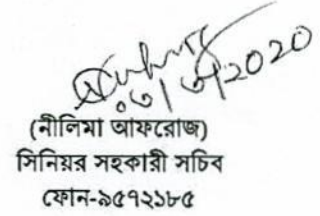 ০৩/৩/২০২০
(নীলিমা আফরোজ)
সিনিয়র সহকারী সচিব
ফোন-৯৫৭২১৮৫